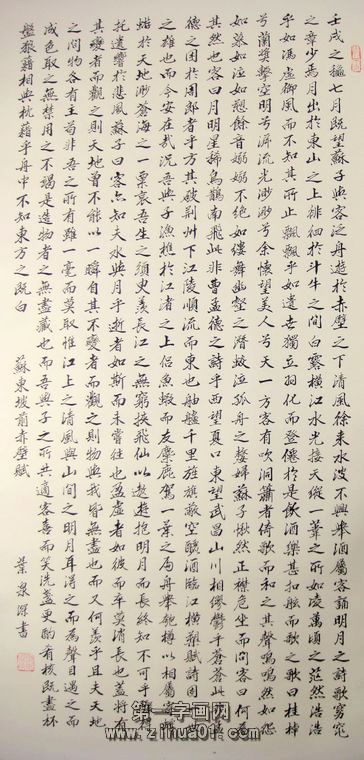 壬戌之秋七月既望蘇子與客泛舟遊於赤壁之下清風徐來水波不興舉酒屬客誦明月之詩歌窈窕
之章少焉月出於東山之上徘徊於斗牛之間白露橫江水光接天縱一葦之所如凌萬頃之茫然浩浩
乎如馮虛御風而不知其所止飄飄乎如遺世獨立羽化而登僊於是飲酒樂甚扣舷而歌之歌曰桂棹
兮蘭槳擊空明兮泝流光渺渺兮余懷望美人兮天一方客有吹洞簫者倚歌而和之其聲嗚嗚然如怨
如慕如泣如愬餘音嫋嫋不絕如縷舞幽壑之潛蛟泣孤舟之嫠婦蘇子愀然正襟危坐而問客曰何為
其然也客曰月明星稀烏鵲南飛此非曹孟德之詩乎西望夏口東望武昌山川相繆鬱乎蒼蒼此非孟
德之困於周郎者乎方其破荊州下江陵順流而東也舳艫千里旌旗蔽空釃酒臨江橫槊賦詩固一世
之雄也而今安在哉況吾與子漁樵於江渚之上侶魚蝦而友麋鹿駕一葉之扁舟舉匏樽以相屬寄蜉
蝣於天地渺蒼海之一粟哀吾生之須臾羨長江之無窮挾飛仙以遨遊抱明月而長終知不可乎驟得
托遺響於悲風蘇子曰客亦知夫水與月乎逝者如斯而未嘗往也盈虛者如彼而卒莫消長也蓋將自
其變者而觀之則天地曾不能以一瞬自其不變者而觀之則物與我皆無盡也而又何羨乎且夫天地
之間物各有主苟非吾之所有雖一毫而莫取惟江上之清風與山間之明月耳得之而為聲目遇之而
成色取之無禁用之不竭是造物者之無盡藏也而吾與子之所共適客喜而笑洗盞更酌肴核既盡杯
盤狼籍相與枕藉乎舟中不知東方之既白 蘇東坡前赤壁賦 葉泉深書
第一字画网
www.zihua01.com